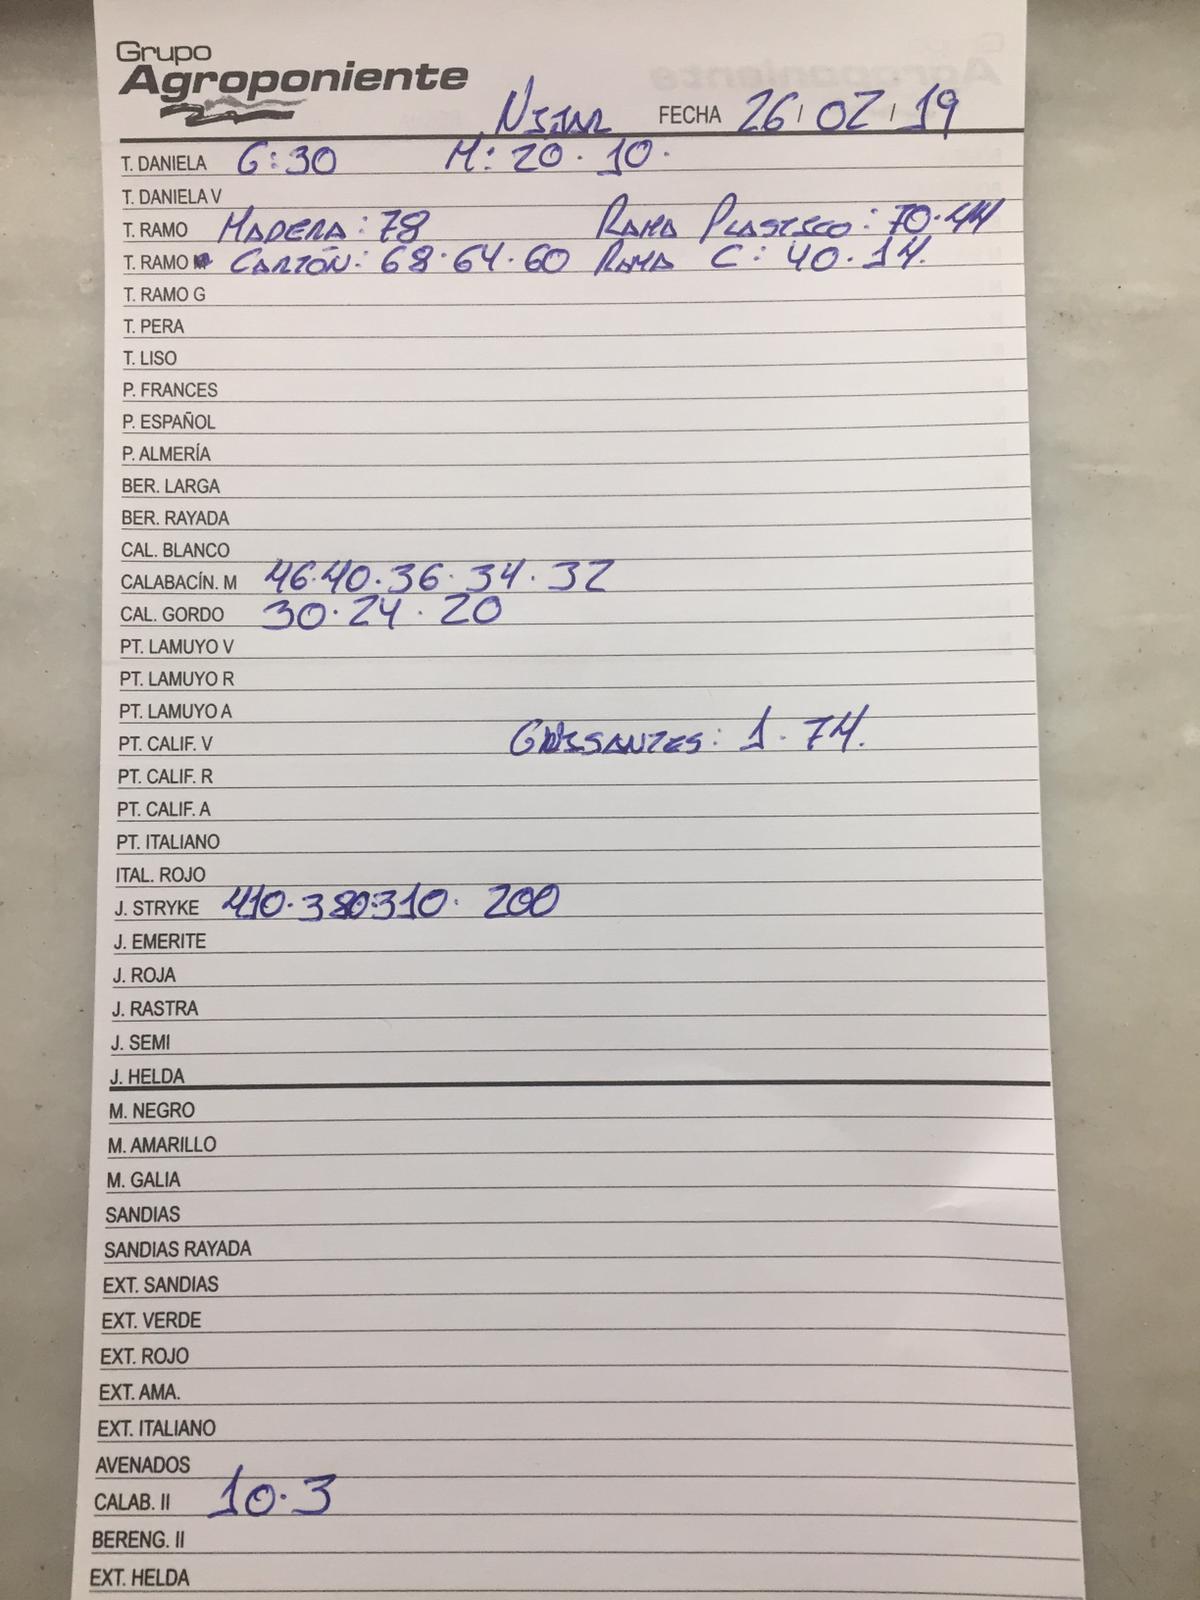 Grupo
Agroponiente
NIJAR FECHA 26/02/19
T. DANIELA G:30 M: 20·10·
T. DANIELA V
T. RAMO MADERA: 78 RAMA PLASTICO: 70·44
T. RAMO CARTÓN: 68·64·60 RAMA C: 40·14.
T. RAMO G
T. PERA
T. LISO
P. FRANCES
P. ESPAÑOL
P. ALMERÍA
BER. LARGA
BER. RAYADA
CAL. BLANCO
CALABACÍN. M 46·40·36·34·32
CAL. GORDO 30·24·20
PT. LAMUYO V
PT. LAMUYO R
PT. LAMUYO A
PT. CALIF. V GUISANTES: 1·74.
PT. CALIF. R
PT. CALIF. A
PT. ITALIANO
ITAL. ROJO
J. STRYKE 410·380·310·200
J. EMERITE
J. ROJA
J. RASTRA
J. SEMI
J. HELDA
M. NEGRO
M. AMARILLO
M. GALIA
SANDIAS
SANDIAS RAYADA
EXT. SANDIAS
EXT. VERDE
EXT. ROJO
EXT. AMA.
EXT. ITALIANO
AVENADOS
CALAB. II 10·3
BERENG. II
EXT. HELDA